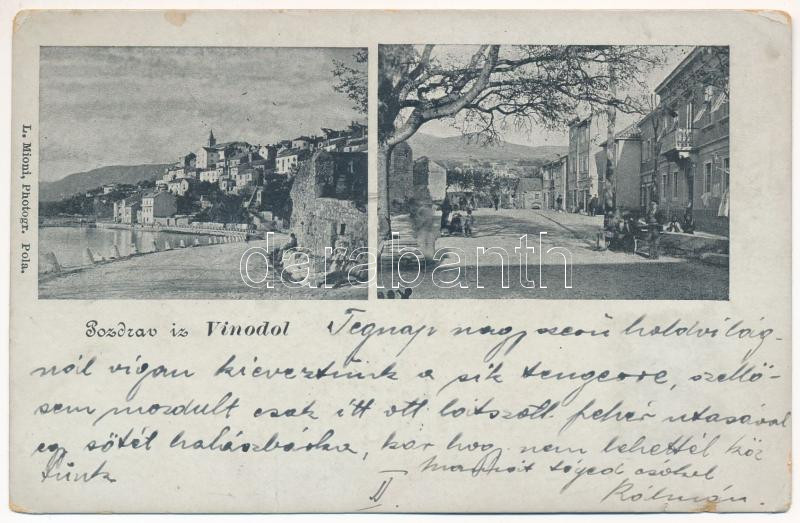 L. Mioni, Photogr. Pola.
darabanth
Pozdrav iz Vinodol
Tegnap nagyszerű holdvilág-
nál vígan kieveztünk a sík tengerre, szellő-
sem mozdult csak itt ott látszott fehér utasával
egy sötét halászbárka, kár hogy nem lehettél köz
tünk
téged csókol
Kálmán.